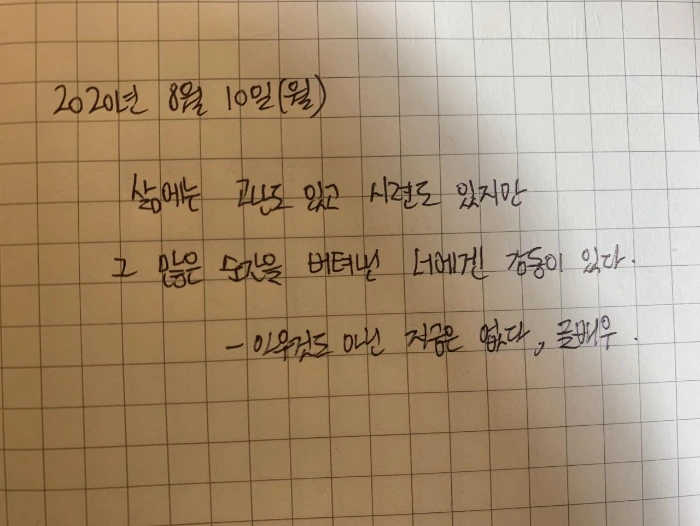 2020년 8월 10일(월)
삶에는 고난도 있고 시련도 있지만
그 많은 순간을 버텨낸 너에겐 감동이 있다.
- 아무것도 아닌 지금은 없다, 글배우.